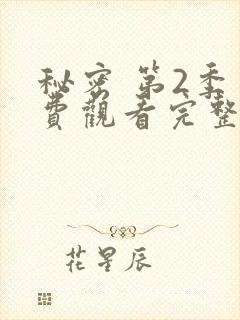 秘密 第2季
費觀看完整
花星辰